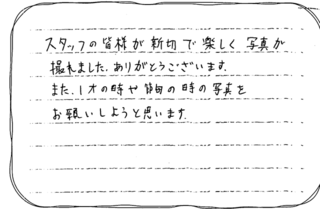 スタッフの皆様が親切で楽しく写真が
撮れました。ありがとうございます。
また、1才の時や節句の時の写真を
お願いしようと思います。